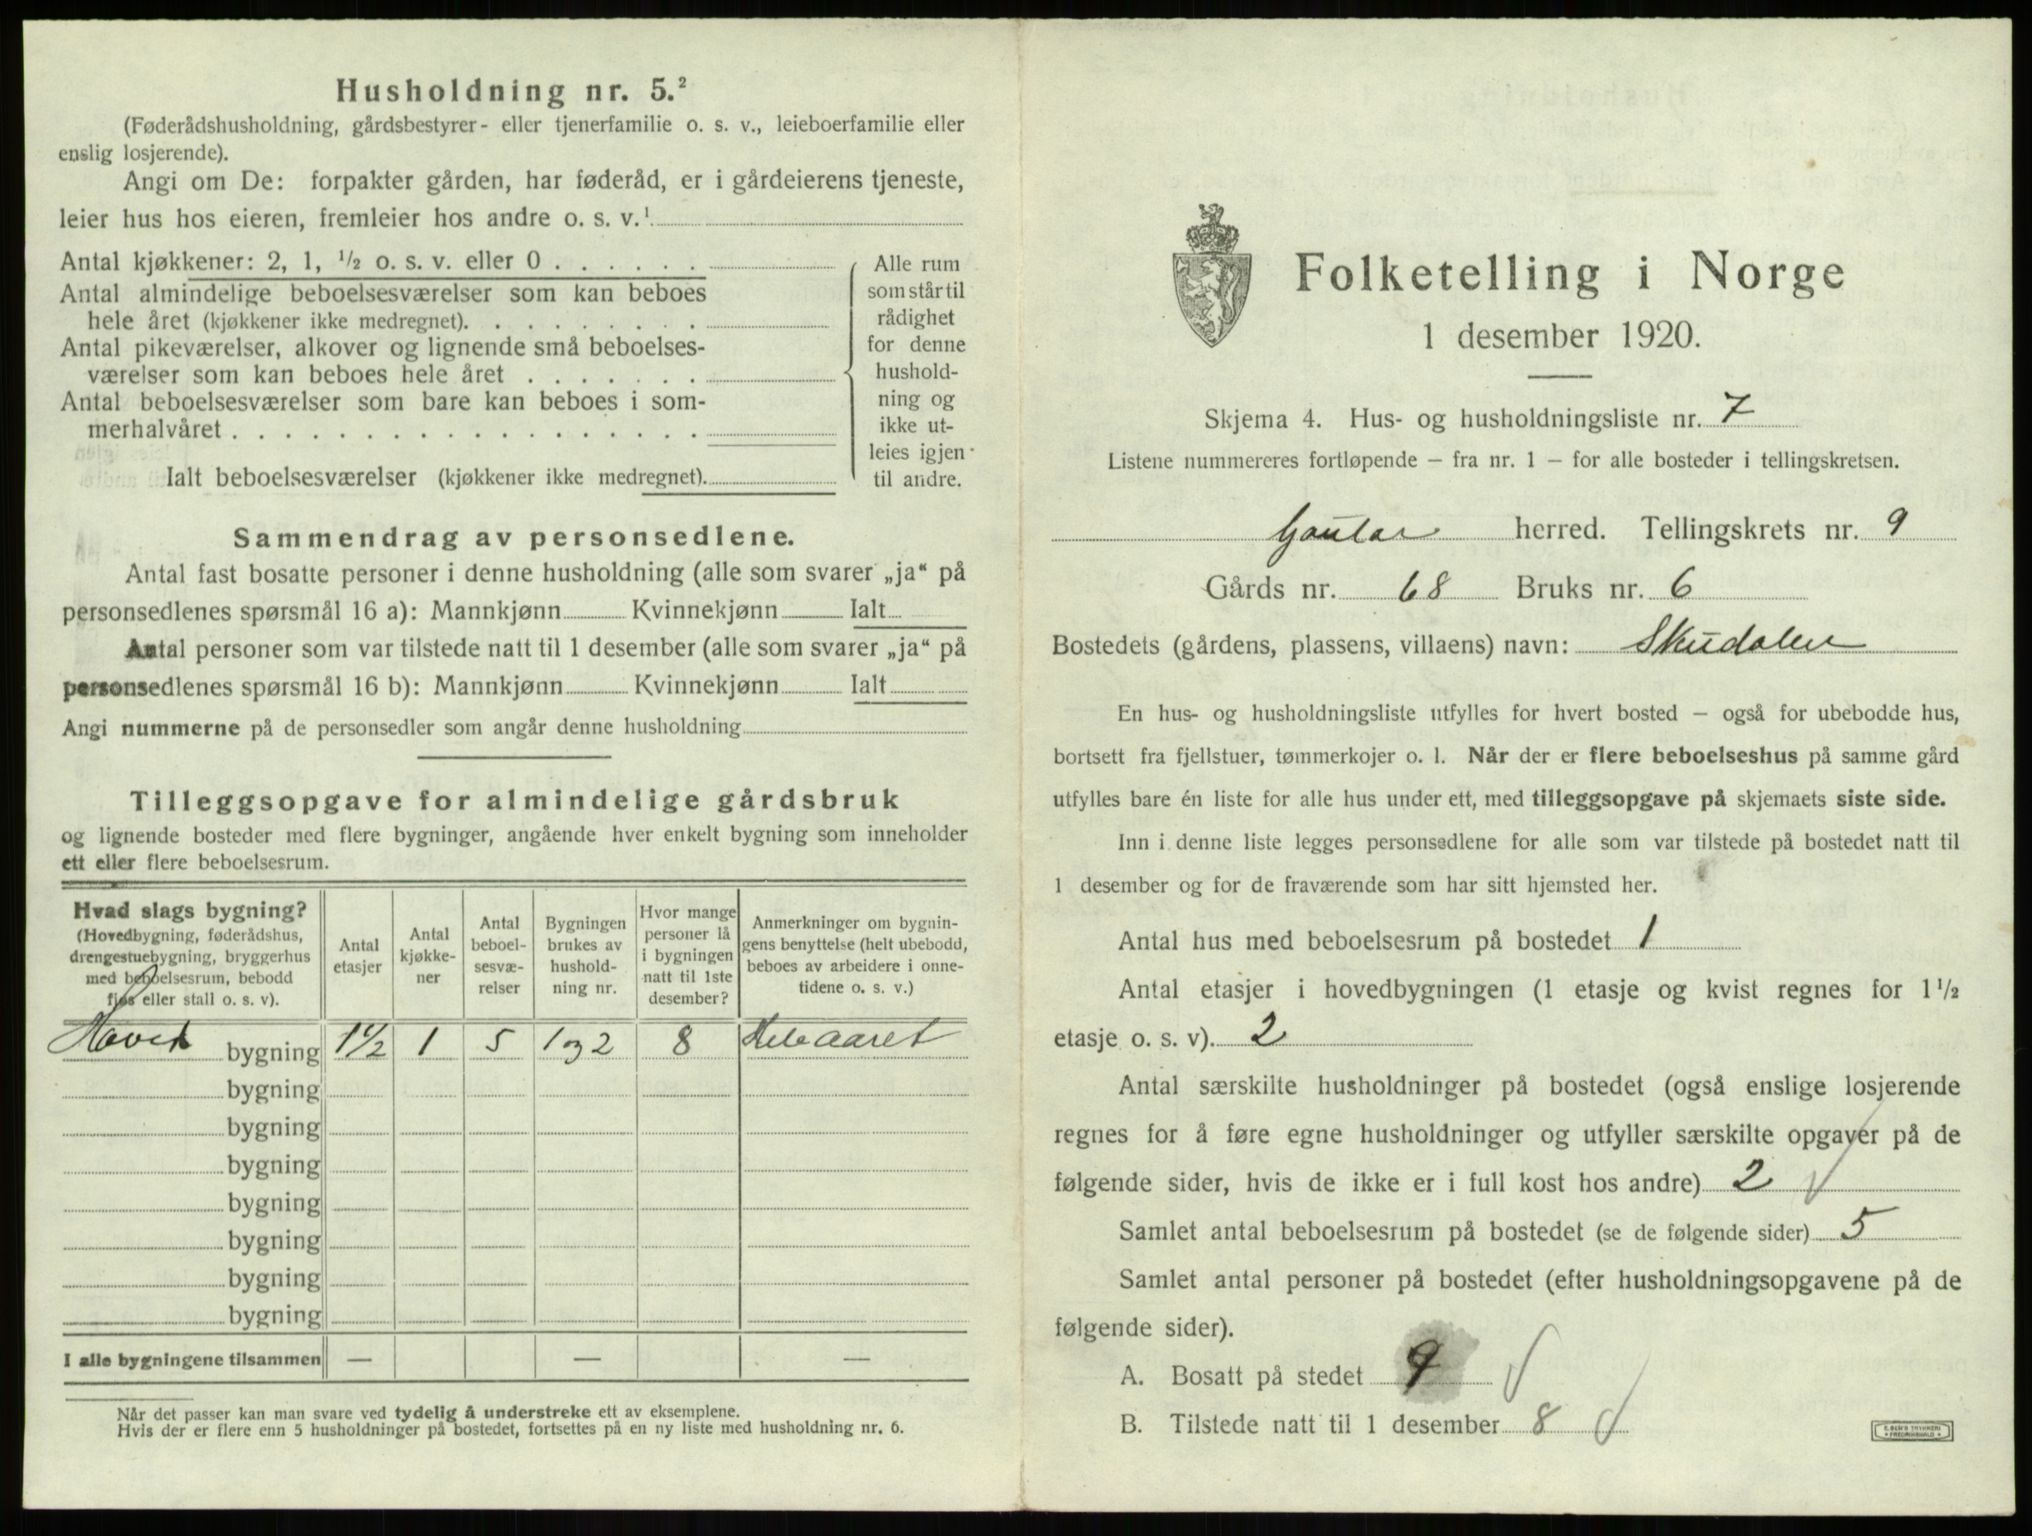 Husholdning nr. 5.²
(Føderådshusholdning, gårdsbestyrer- eller tjenerfamilie o. s. v., leieboerfamilie eller
enslig losjerende).
Angi om De: forpakter gården, har føderåd, er i gårdeierens tjeneste,
leier hus hos eieren, fremleier hos andre o. s. v.¹
Antal kjøkkener: 2, 1, ½ o. s. v. eller 0 . . . . . .
Antal almindelige beboelsesværelser som kan beboes
hele året (kjøkkener ikke medregnet). . . . . . . . .
Antal pikeværelser, alkover og lignende små beboelses-
værelser som kan beboes hele året . . . . . . .
Antal beboelsesværelser som bare kan beboes i som-
merhalvåret . . . . . . . . . . . . . . . . . .
Ialt beboelsesværelser (kjøkkener ikke medregnet).
Alle rum
som står til
rådighet
for denne
hushold-
ning og
ikke ut-
leies igjen
til andre.
Sammendrag av personsedlene.
Antal fast bosatte personer i denne husholdning (alle som svarer „ja“ på
personsedlenes spørsmål 16 a): Mannkjønn Kvinnekjønn Ialt
Antal personer som var tilstede natt til 1 desember (alle som svarer „ja“ på
personsedlenes spørsmål 16 b): Mannkjønn Kvinnekjønn Ialt
Angi nummerne på de personsedler som angår denne husholdning
Tilleggsopgave for almindelige gårdsbruk
og lignende bosteder med flere bygninger, angående hver enkelt bygning som inneholder
ett eller flere beboelsesrum.
Hvad slags bygning?
(Hovedbygning, føderådshus,
drengestuebygning, bryggerhus
med beboelsesrum, bebodd
fjøs eller stall o. s. v).
Antal
etasjer
Antal
kjøkke-
ner
Antal
beboel-
sesvæ-
relser
Bygningen
brukes av
hushold-
ning nr.
Hvor mange
personer lå
i bygningen
natt til 1ste
desember?
Anmerkninger om bygnin-
gens benyttelse (helt ubebodd,
beboes av arbeidere i onne-
tidene o. s. v.)
Hoved bygning 1½ 1 5 1 og 2 8 Hele aaret
bygning
bygning
bygning
bygning
bygning
bygning
bygning
I alle bygningene tilsammen — — —
Når det passer kan man svare ved tydelig å understreke ett av eksemplene.
Hvis der er flere enn 5 husholdninger på bostedet, fortsettes på en ny liste med husholdning nr. 6.
Folketelling i Norge
1 desember 1920.
Skjema 4. Hus- og husholdningsliste nr. 7
Listene nummereres fortløpende – fra nr. 1 – for alle bosteder i tellingskretsen.
Gaular herred. Tellingskrets nr. 9
Gårds nr. 68 Bruks nr. 6
Bostedets (gårdens, plassens, villaens) navn: Skudalen
En hus- og husholdningsliste utfylles for hvert bosted – også for ubebodde hus,
bortsett fra fjellstuer, tømmerkojer o. l. Når der er flere beboelseshus på samme gård
utfylles bare én liste for alle hus under ett, med tilleggsopgave på skjemaets siste side.
Inn i denne liste legges personsedlene for alle som var tilstede på bostedet natt til
1 desember og for de fraværende som har sitt hjemsted her.
Antal hus med beboelsesrum på bostedet 1
Antal etasjer i hovedbygningen (1 etasje og kvist regnes for 1½
etasje o. s. v). 2
Antal særskilte husholdninger på bostedet (også enslige losjerende
regnes for å føre egne husholdninger og utfyller særskilte opgaver på de
følgende sider, hvis de ikke er i full kost hos andre) 2
Samlet antal beboelsesrum på bostedet (se de følgende sider) 5
Samlet antal personer på bostedet (efter husholdningsopgavene på de
følgende sider).
A. Bosatt på stedet 9
B. Tilstede natt til 1 desember 8